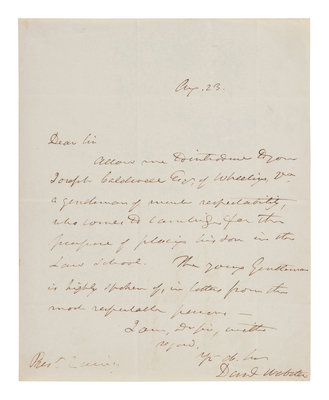 Aug. 23.
Dear Sir
Allow me to introduce to you
Joseph Caldwell Esq. of Wheeling, Va.
a gentleman of much respectability,
who comes to Cambridge for the
purpose of placing his son in the
Law School. The young Gentleman
is highly spoken of, in letters from the
most respectable persons—
I am, dr sir, with
regard,
Yr ob. 
Danl Webster
Prest